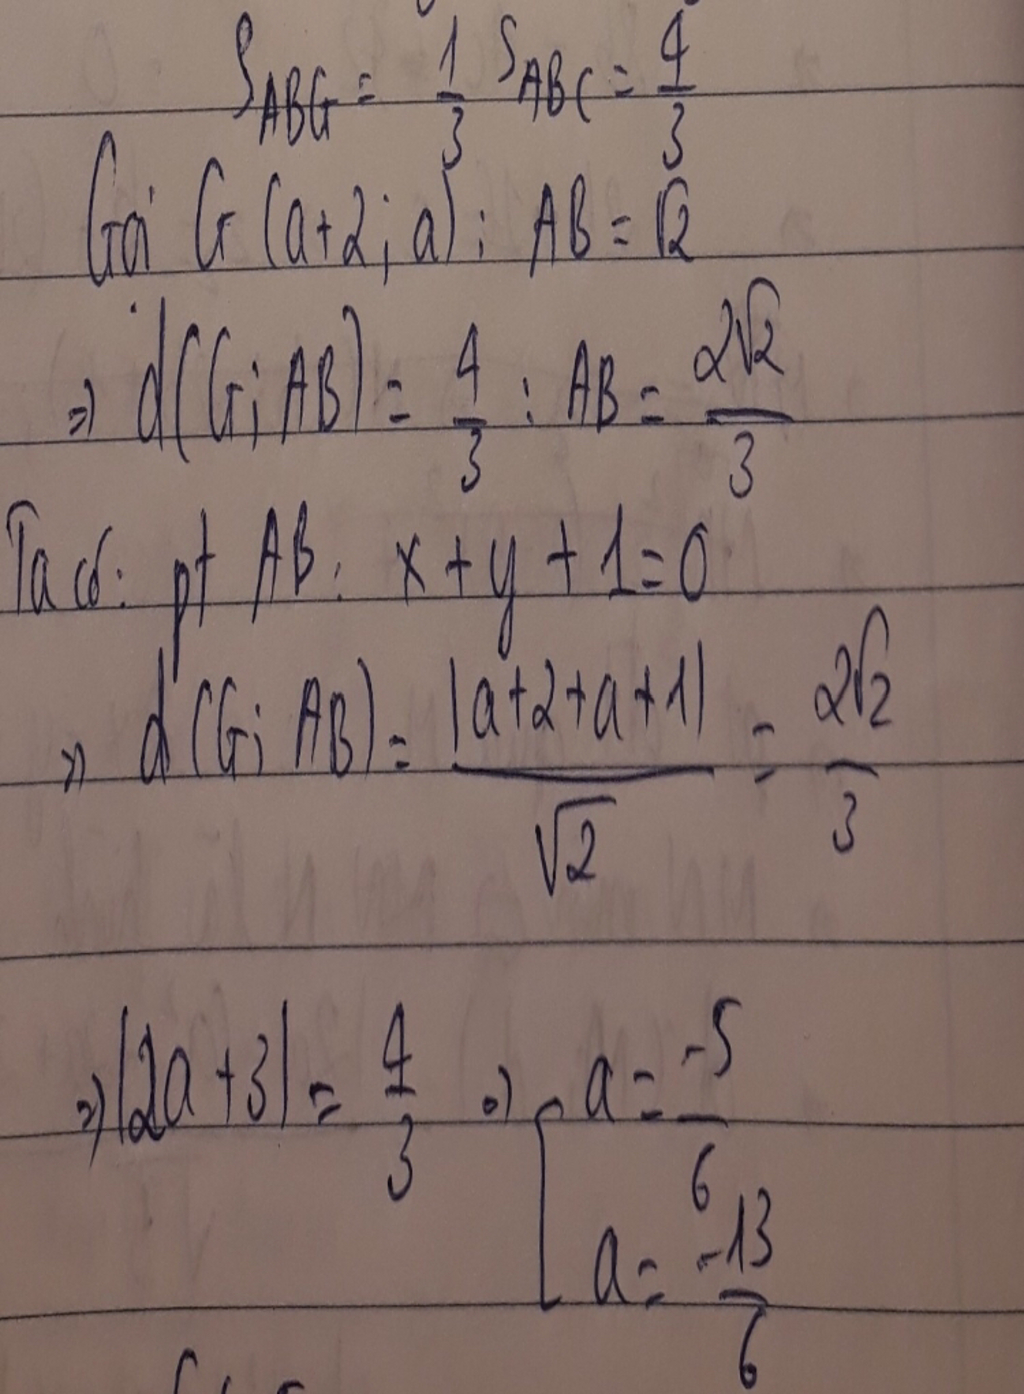 S_ABG = 1/3 S_ABC = 4/3
Gọi G (a+2; a); AB = √2
=> d(G; AB) = 4/3 : AB = 2√2/3
Ta có: pt AB: x + y + 1 = 0
=> d(G; AB) = |a+2+a+1|/√2 = 2√2/3
=> |2a+3| = 4/3 => [ a = -5/6
a = -13/6